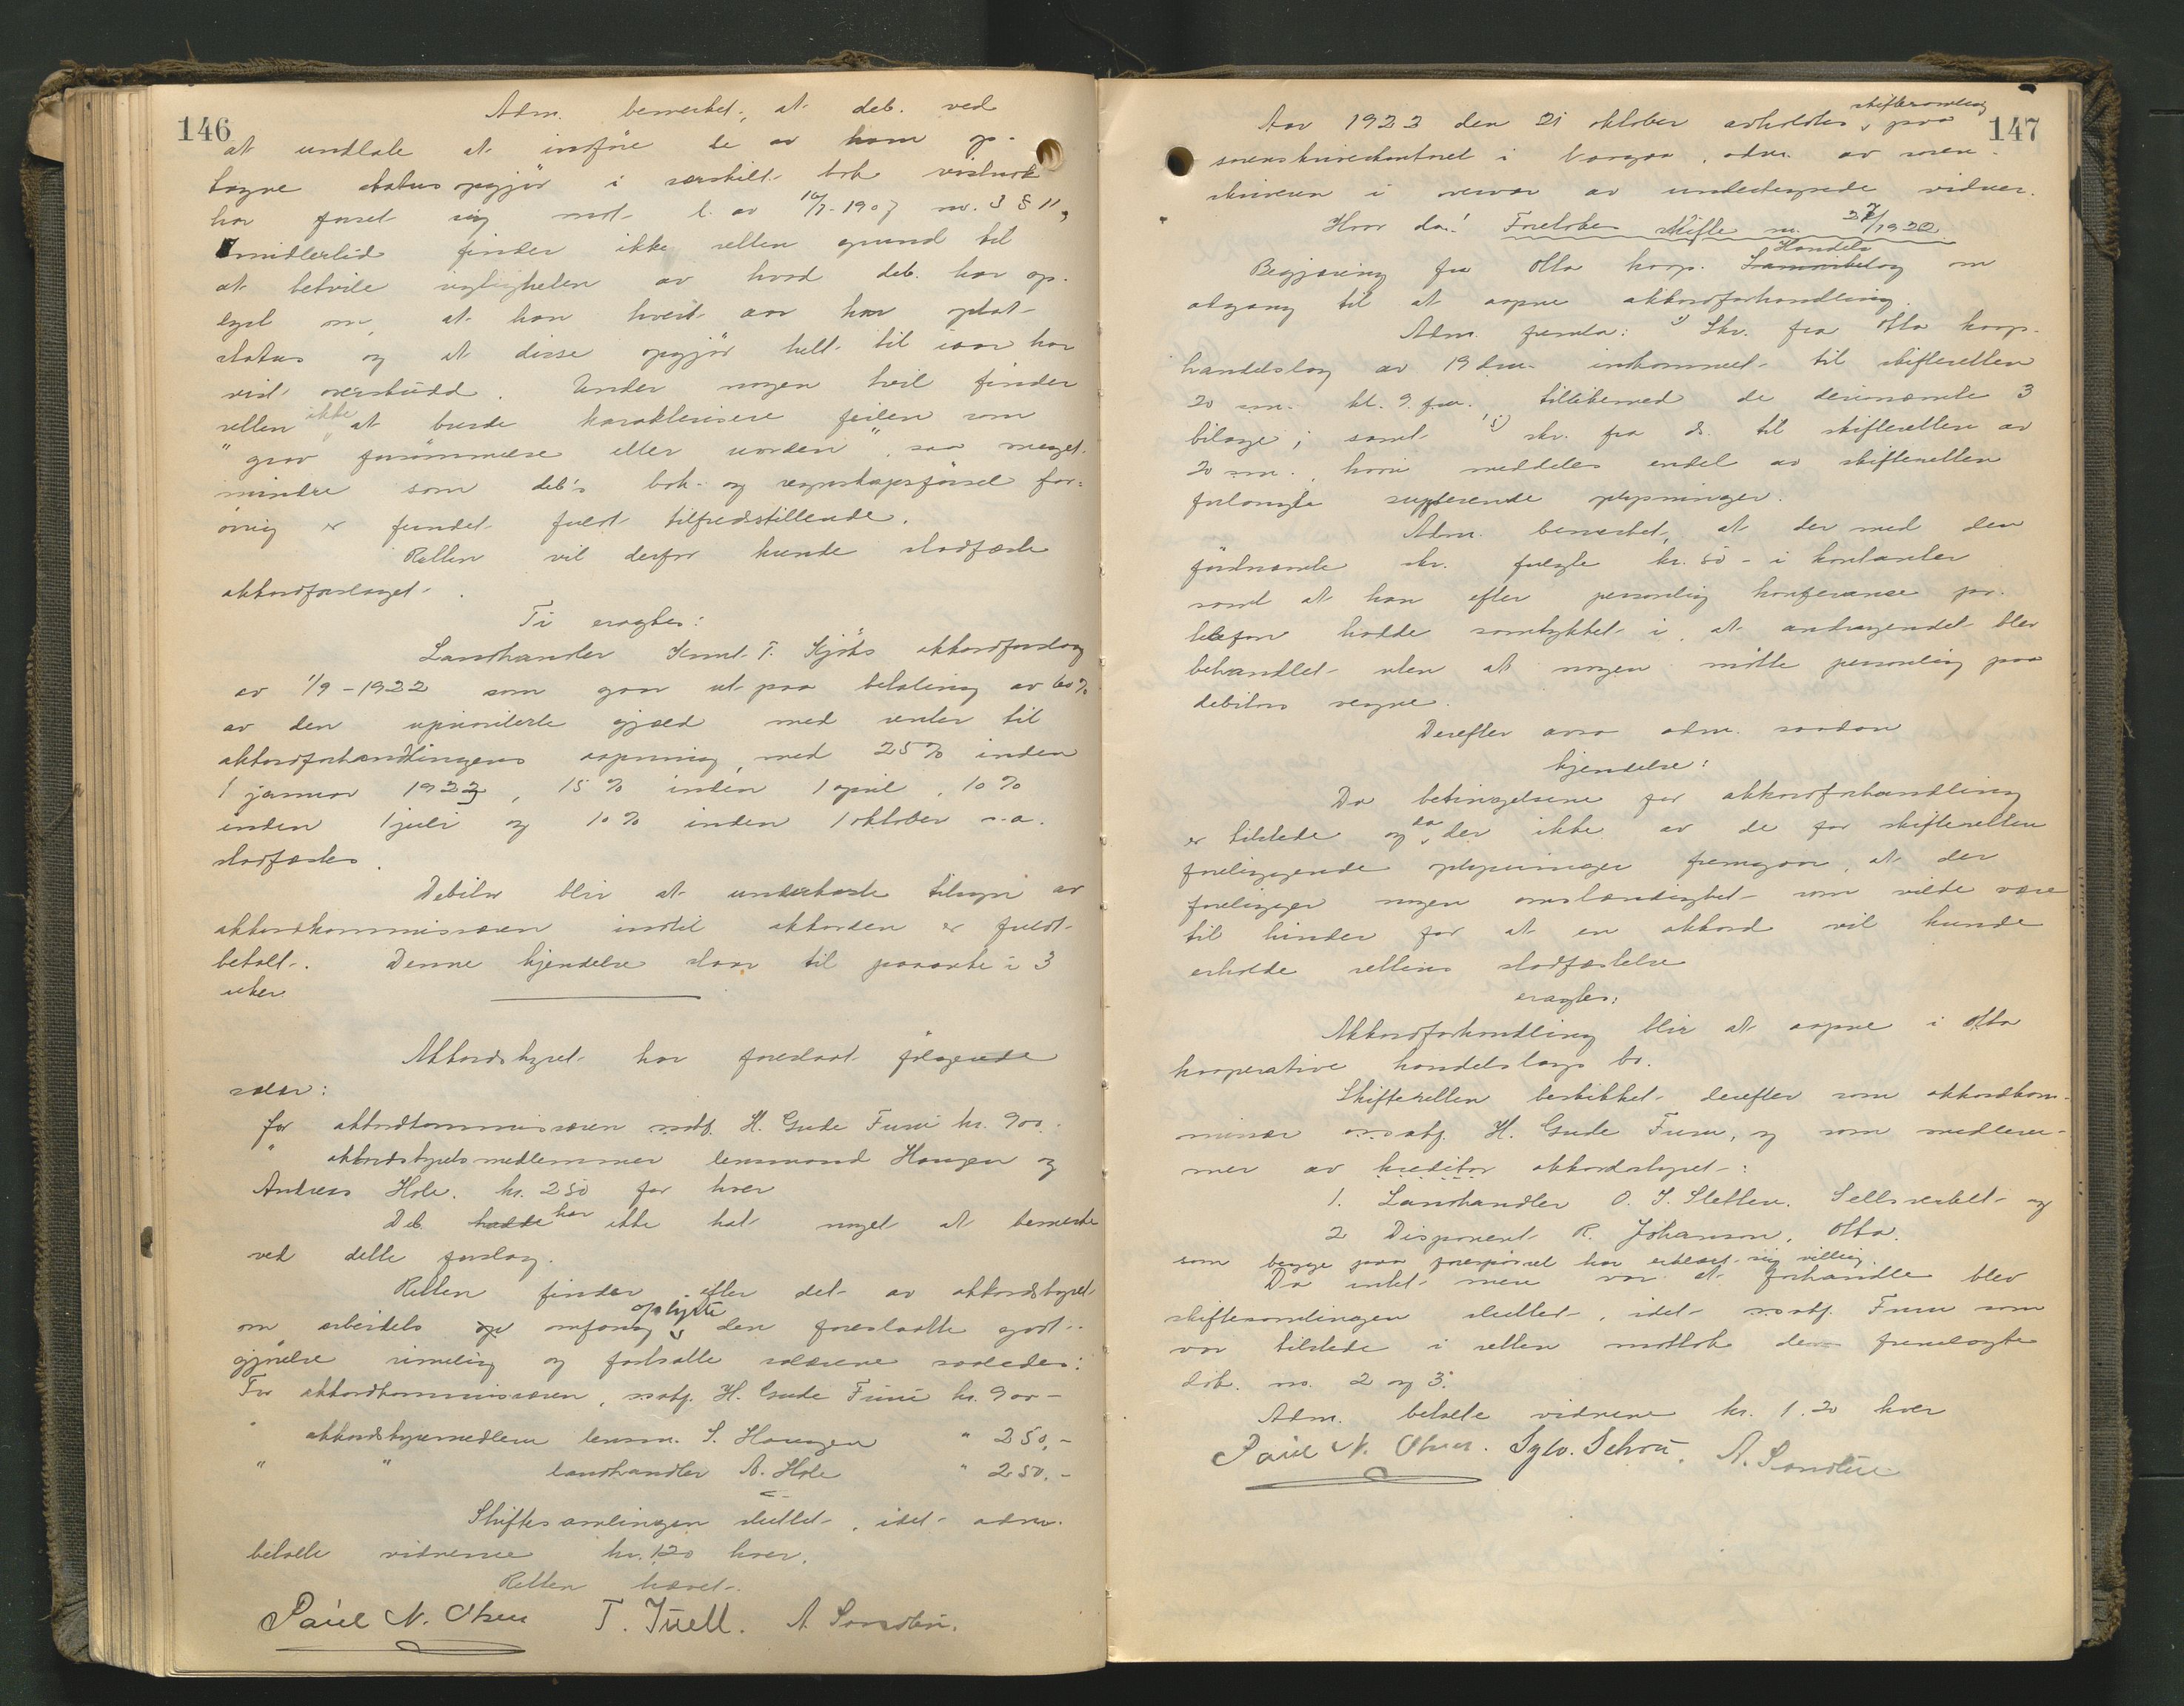 146
Adm. bemerket, at deb. ved
at undlate at indføre de av ham op-
tagne statusopgjør i særskilt bok vistnok
har forset sig mot l. av 16/7-1907 nr. 3 § 11,
Imidlertid finder ikke retten grund til
at betvile rigtigheten av hvad deb. har op-
lyst om, at han hvert aar har optat
status og at disse opgjør helt til iaar har
vist overskudd. Under nogen tvil finder
retten ikke at burde karakterisere feilen som
"grov forsømmelse eller uorden", saa meget
mindre som deb's bok- og regnskapsførsel for-
øvrig er fundet fuldt tilfredsstillende.
Retten vil derfor kunde stadfæste
akkordforslaget.
Ti eragtes:
Landhandler Knut T. Kjøks akkordforslag
av 1/9-1922 som gaar ut paa betaling av 60%
av den uprioriterte gjæld med renter til
akkordforhandlingens aapning, med 25% inden
1 januar 1923, 15% inden 1 april, 10%
inden 1 juli og 10% inden 1 oktober s.a.
stadfæstes.
Debitor blir at underkaste tilsyn av
akkordkommissæren indtil akkorden er fuldt
betalt. Denne kjendelse staar til paaanke i 3
uker.
Akkordstyret har foreslaat følgende
salær:
for akkordkommissæren ssakf. H. Gude Furu kr. 900.-
" akkordstyrets medlemmer lensmand Haugen og
Andreas Hole. kr. 250 for hver
Deb. hadde har ikke hat noget at bemerke
ved dette forslag.
Retten finder efter det av akkordstyret
om arbeidets omfang oplyste den foreslaatte godt-
gjørelse rimelig og fastsatte salærene saaledes:
For akkordkommissæren, ssakf. H. Gude Furu kr. 900 -
" akkordstyremedlem lensm. S. Haugen " 250.-
" " landhandler A. Hole " 250.-
Skiftesamlingen sluttet, idet adm.
betalte vidnene kr. 1.20 hver.
Retten hævet.
Paul N. Olsen T. Juell. A. Sandbu.
147
Aar 1922 den 21 oktober avholdtes skiftesamling paa
sorenskriverkontoret i Vaagaa, adm. av soren-
skriveren i overvær av undertegnede vidner.
Hvor da! Foretokes skifte nr. 27/1922
Begjæring fra Otta koop. Handelslag om
adgang til at aapne akkordforhandling.
Adm. fremla: 1) Skr. fra Otta koop.
handelslag av 19 dm. indkommet til skifteretten
20 sm. kl. 9 fm. tillikemed de derinævnte 3
bilage; samt 5) skr. fra ds. til skifteretten av
20 sm. hvori meddeles endel av skifteretten
forlangte suplerende oplysninger.
Adm. bemerket, at der med den
førstnævnte skr. fulgte kr. 50 - i kontanter
samt at han efter personlig konferanse pr.
telefon hadde samtykket i, at andragendet blev
behandlet uten at nogen møtte personlig paa
debitors vegne.
Derefter avsa adm. saadan
kjendelse:
Da betingelsene for akkordforhandling
er tilstede og da der ikke av de for skifteretten
foreliggende oplysninger fremgaar, at der
foreligger nogen omstændighet som vilde være
til hinder for at en akkord vil kunde
erholde rettens stadfæstelse
eragtes:
Akkordforhandling blir at aapne i Otta
kooperative handelslags bo.
Skifteretten beskikket derefter som akkordkom-
missær ssakf. H. Gude Furu, og som medlem-
mer av kreditor akkordstyret:
1. Landhandler O. J. Sletten. Sellsverket og
2 Disponent R. Johanson, Otta.
som begge paa forespørsel har erklært sig villig.
Da intet mere var at forhandle blev
skiftesamlingen sluttet, idet ssakf. Furu som
var tilstede i retten mottok de fremlagte
dok. nr. 2 og 3.
Adm. betalte vidnene kr. 1.20 hver
Paul N. Olsen. Sylv. Schou. A. Sandbu